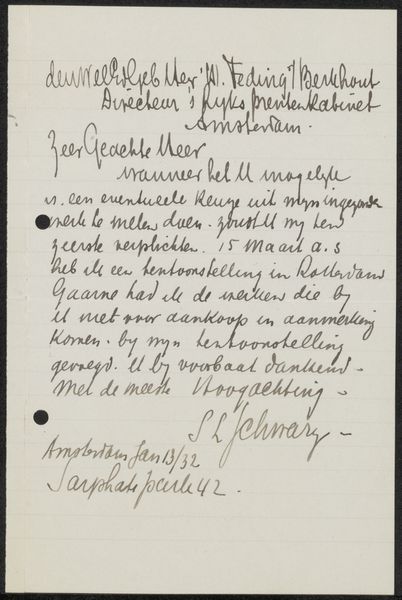 den WelEdGeb Heer J.W. Teding v/ Berkhout
Directeur 's Ryks prentenkabinet
Amsterdam.
Zeer Geachte Heer
wanneer het U mogelyk
is. een eventueele keuze uit myn ingezonden
werk te willen doen. zoudt U my ten
zeerste verplichten. 15 Maart a.s
heb ik een tentoonstelling in Rotterdam
Gaarne had ik de werken die by
U niet voor aankoop in aanmerking
komen. by myn tentoonstelling
gevoegd. U by voorbaat dankend -
met de meeste Hoogachting -
S L Schwarz -
Amsterdam Jan 13/32
Sarphatipark 42.